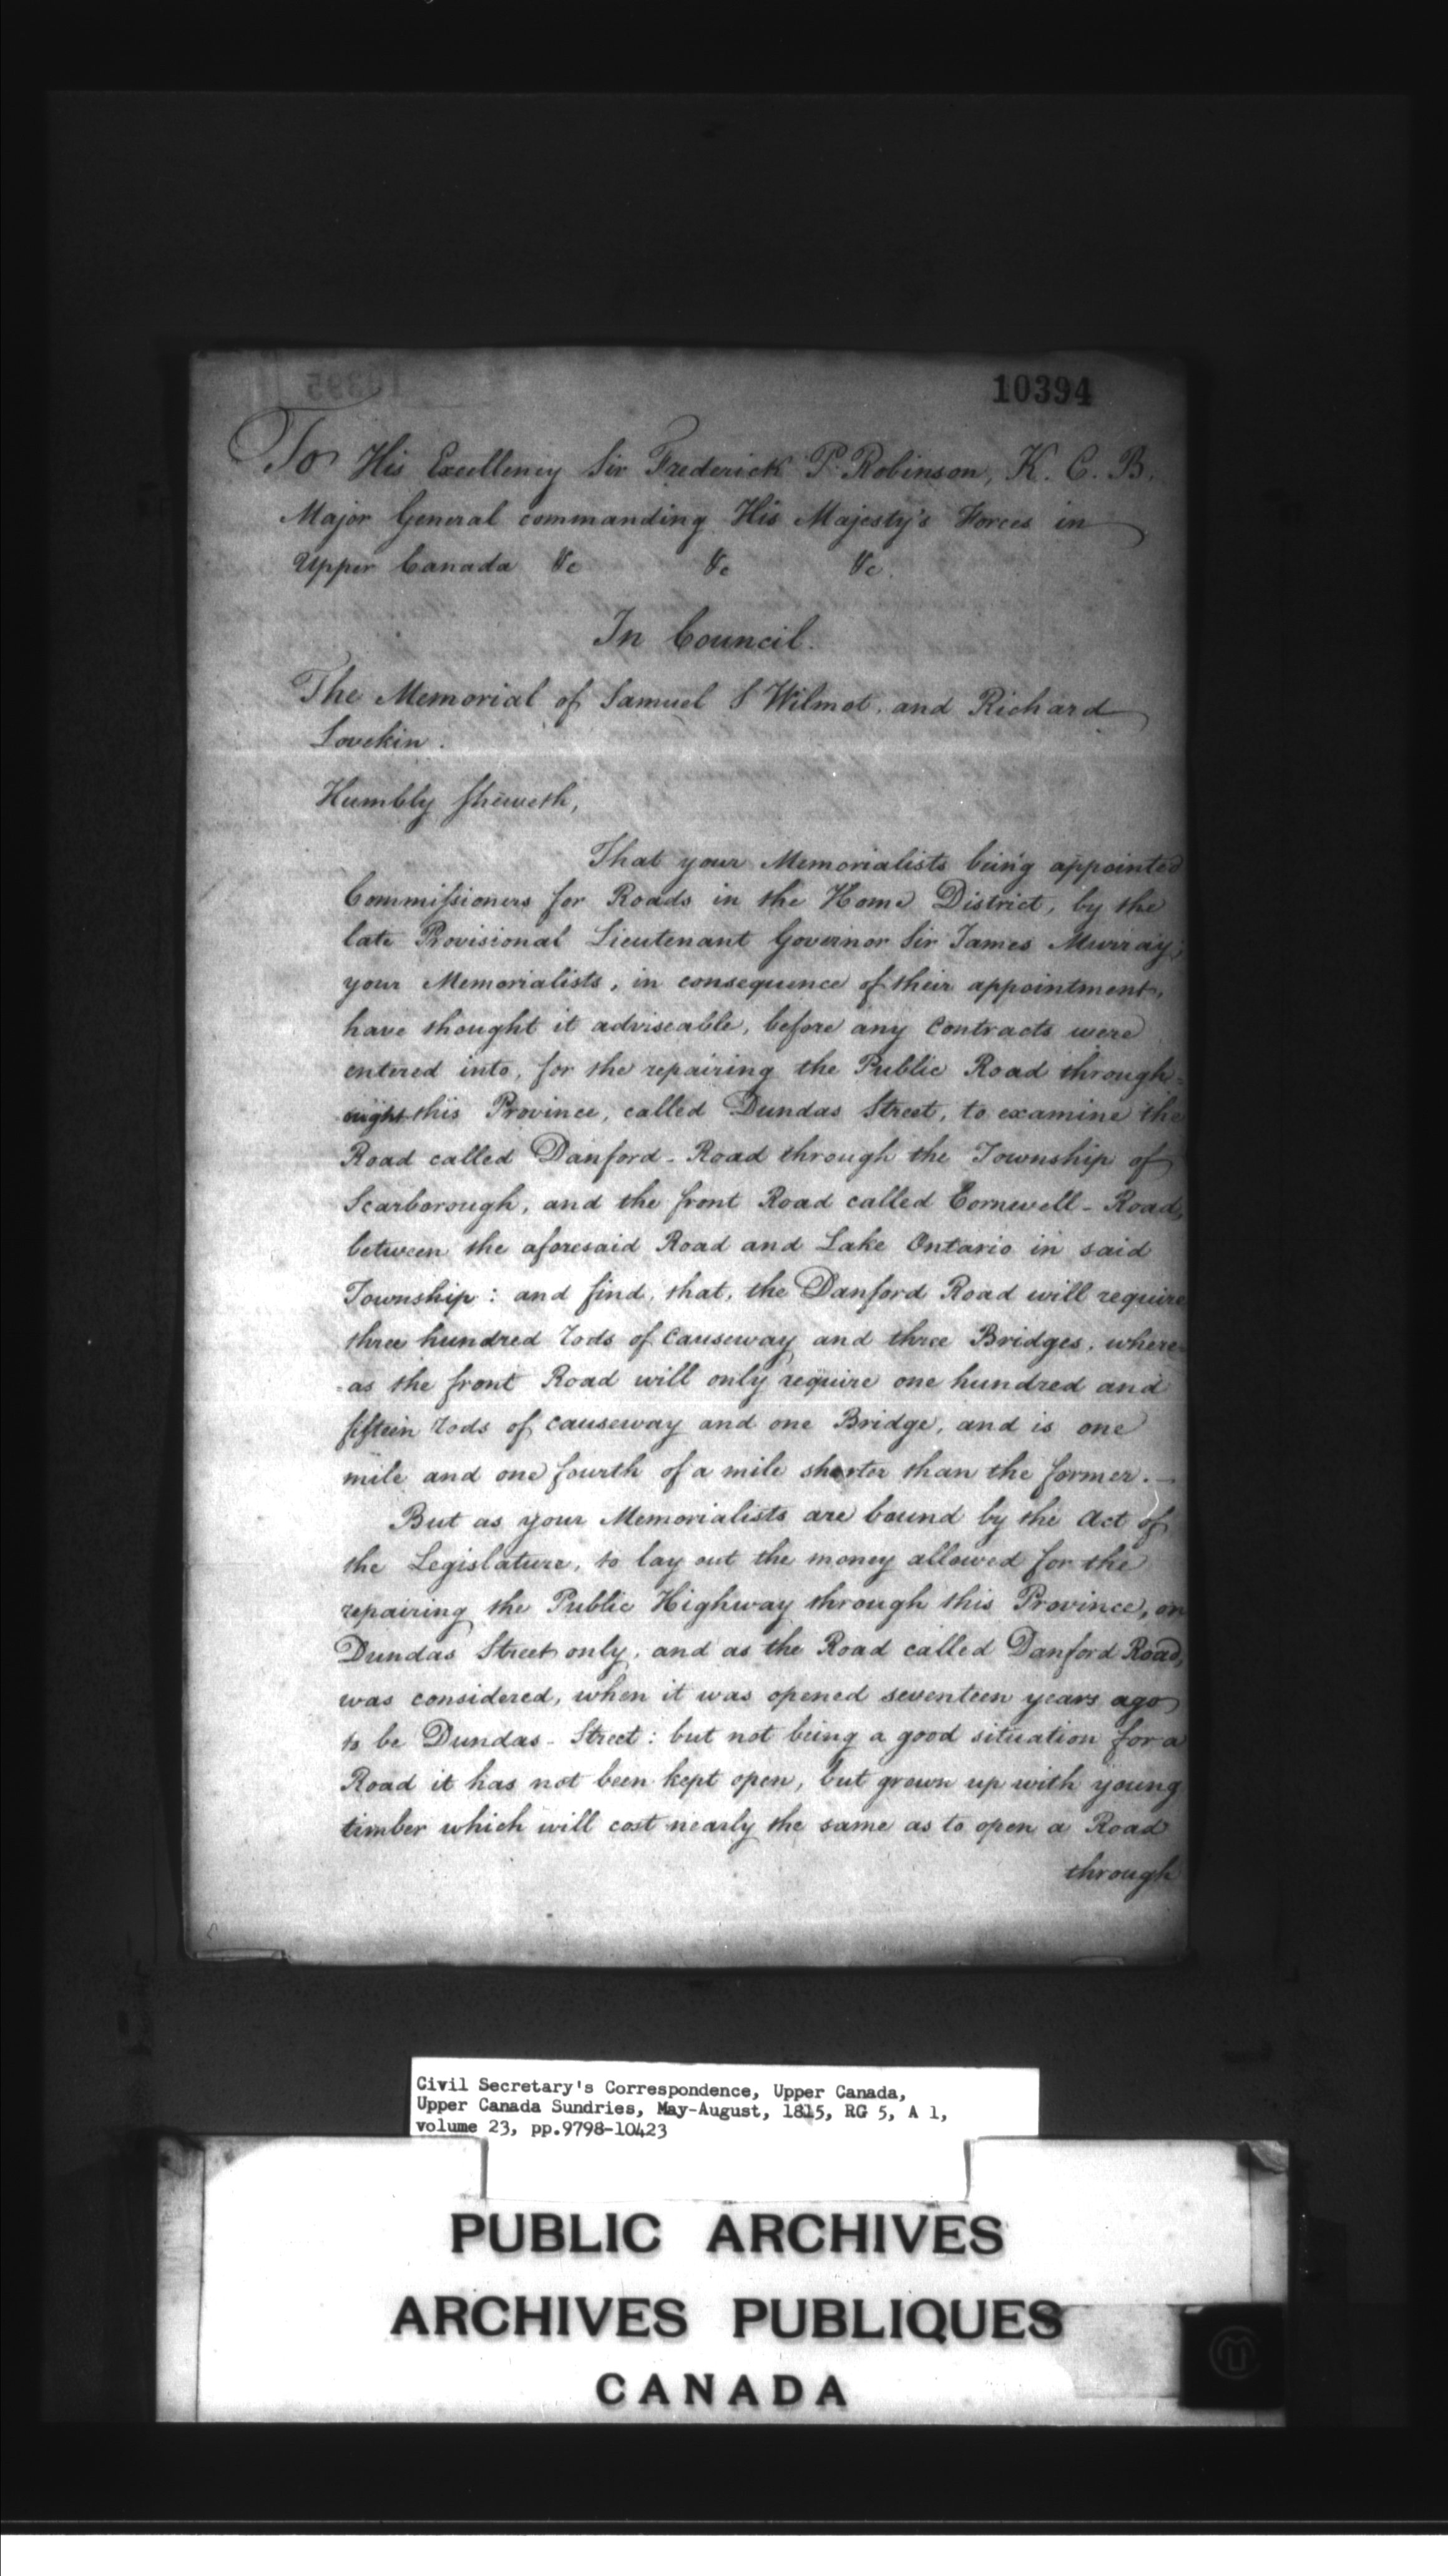 10394
To His Excellency Sir Frederick P. Robinson, K. C. B.
Major General commanding His Majesty's Forces in
Upper Canada &c &c &c.
In Council.
The Memorial of Samuel S Wilmot, and Richard
Lovekin.
Humbly Sheweth,
That your Memorialists being appointed
Commissioners for Roads in the Home District, by the
late Provisional Lieutenant Governor Sir James Murray;
your Memorialists, in consequence of their appointment,
have thought it adviseable, before any Contracts were
entered into, for the repairing the Public Road through-
this Province, called Dundas Street, to examine the
Road called Danford-Road through the Township of
Scarborough, and the front Road called Cornwell-Road,
between the aforesaid Road and Lake Ontario in said
Township: and find, that, the Danford Road will require
three hundred rods of causeway and three Bridges, where-
-as the front Road will only require one hundred and
fifteen rods of causeway and one Bridge, and is one
mile and one fourth of a mile shorter than the former.—
But as your Memorialists are bound by the Act of
the Legislature, to lay out the money allowed for the
repairing the Public Highway through this Province, on
Dundas Street only, and as the Road called Danford Road,
was considered, when it was opened seventeen years ago
to be Dundas-Street: but not being a good situation for a
Road it has not been kept open, but grown up with young
timber which will cost nearly the same as to open a Road
through
Civil Secretary's Correspondence, Upper Canada,
Upper Canada Sundries, May-August, 1815, RG 5, A 1,
volume 23, pp.9798-10423
PUBLIC ARCHIVES
ARCHIVES PUBLIQUES
CANADA